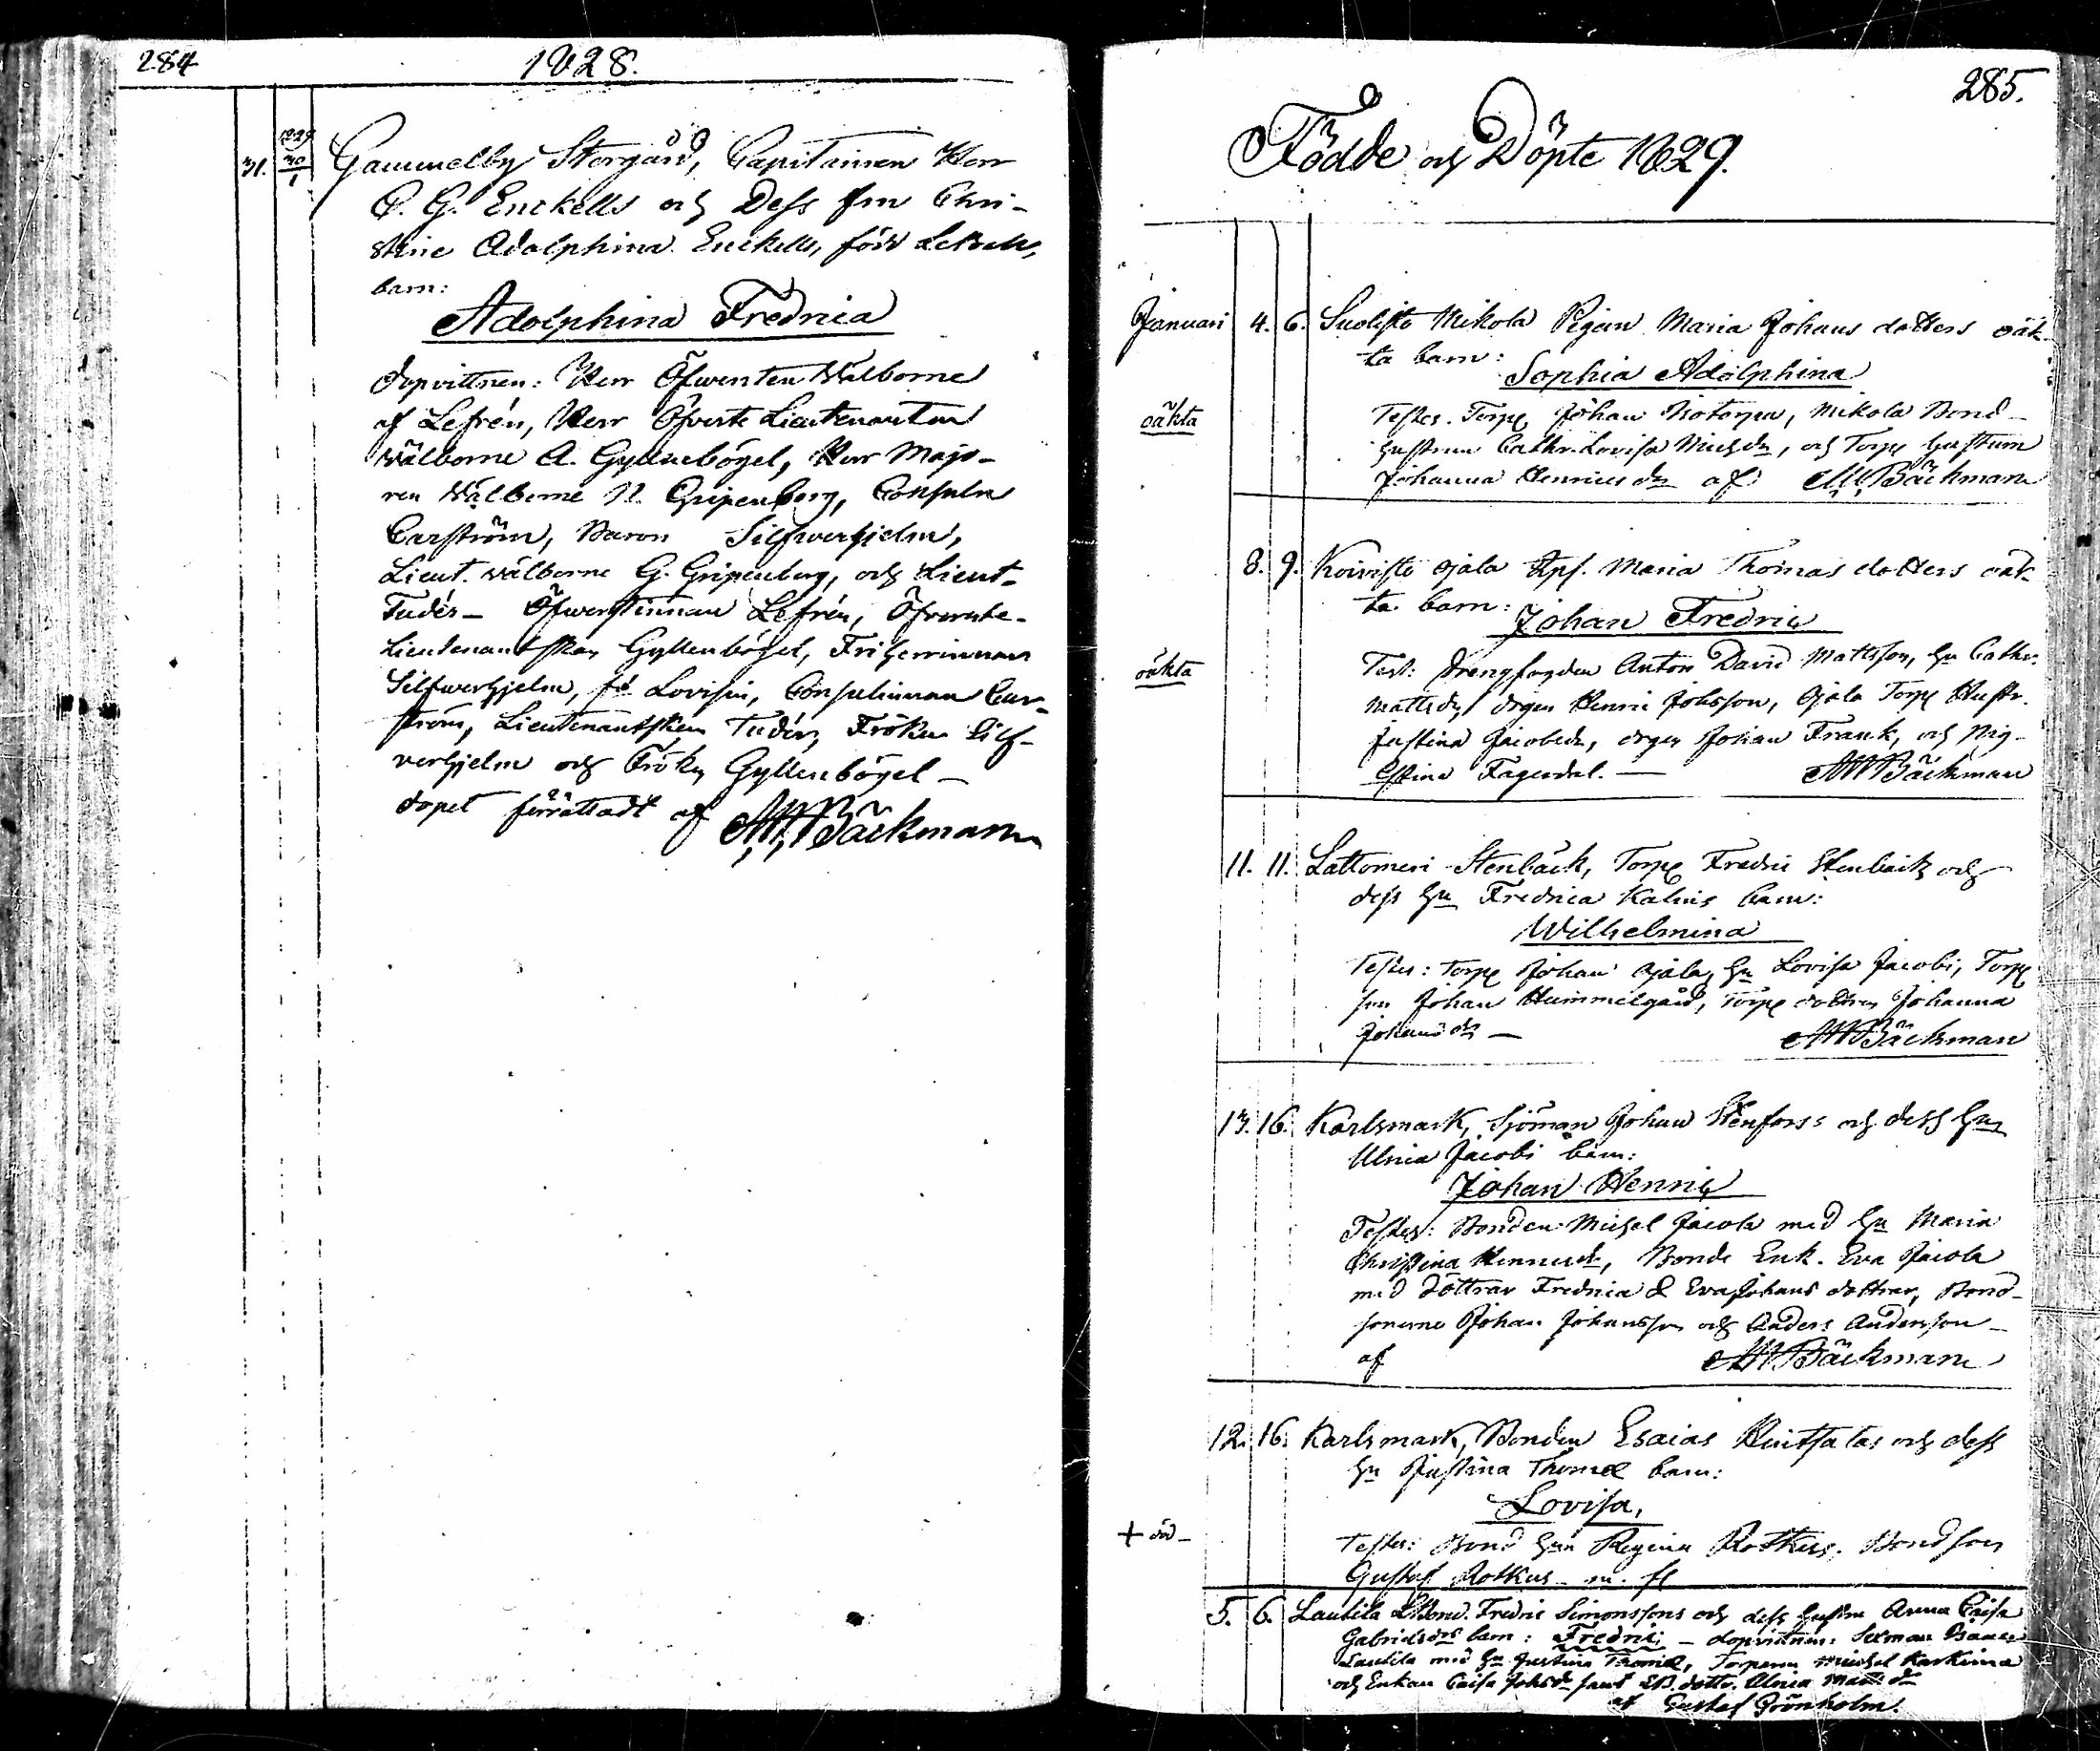 284
1828.
31. 1829 30/1 Gammelby Storgård, Capitainen Herr
C. G. Enckells och Dess fru Chri-
stine Adolphina Enckells, född
barn:
Adolphina Fredrica
dopvittnen: Herr Öfwersten Wälborne
af Lefrén, Herr Öfverste Lieutenanten
Wälborne A. Gyllenbögel, Herr Majo-
ren Wälborne N. Gripenberg, Consuln
Carström, Baron Silfwerhjelm,
Lieut. wälborne G. Gripenberg, och Lieut.
Tudér - Öfwerstinnan Lefrén, Öfverste-
Lieutenantskan Gyllenbögel, Friherrinnan
Silfwerhjelm, Lovisin, Consulinnan Car-
ström, Lieutenantskan Tudér, Fröken Silf-
verhjelm och Fröken Gyllenbögel -
dopet förrättadt af Bäckman
285.
Födde och Döpte 1829.
Januari 4. 6. Suolisto Mikola Pigan Maria Johans dotters oäk-
ta barn:
Sophia Adolphina
oäkta
Testes. Torp Johan Isotorpa, Mikola Bond-
hustrun Cathr. Lovisa Michsdr, och Torp hustrun
Johanna Henricsdr af Bäckman
8. 9. Koivisto Ojala Maria Thomas dotters oäk-
ta barn:
Johan Fredric
oäkta
Test: drengfogden Anton David Mattsson, hu Cathr.
Mattsdr, drgen Henric Johsson, Ojala Torp Hustr.
Justina Jacobsdr, drgen Johan Frank, och Pig-
Stina Fagerdal. - Bäckman
11. 11. Lattomeri Stenbäck, Torp Fredric Stenbäck och
dess hu Fredrica Kalius barn:
Wilhelmina
Testes: Torp Johan Ojala, hu Lovisa Jacobi, Torp
son Johan Hummelgård, Torp dottren Johanna
Johansdr - Bäckman
13. 16. Karlsmark, Sjöman Johan Stenfors: och dess hu
Ulrica Jacobi barn:
Johan Henric
Testes: Bonden Michel Jacola med hu Maria
Christina Henricsdr, Bonde Enk. Eva Jacola
med döttrar Fredrica & Eva Johans döttrar, Bond-
sönerne Johan Johansson och Anders Andersson -
af Bäckman
12. 16. Karlsmark, Bonden Esaias och dess
hu Justina Thomæ barn:
Lovisa,
+ död -
Testes: Bond hun Regina Rotkus, Bondson
Gustaf Rotkus m. fl
5. 6. Lautila Fredric Simonssons och dess hustru Anna Caisa
Gabrielsdrs barn: Fredric - dopvittnen:
Lautila med hu Justina Thomæ, Torparn Michel Karkima
och Enkan Caisa Johsdr samt dottr. Ulrica
af Gustaf Grönholm.